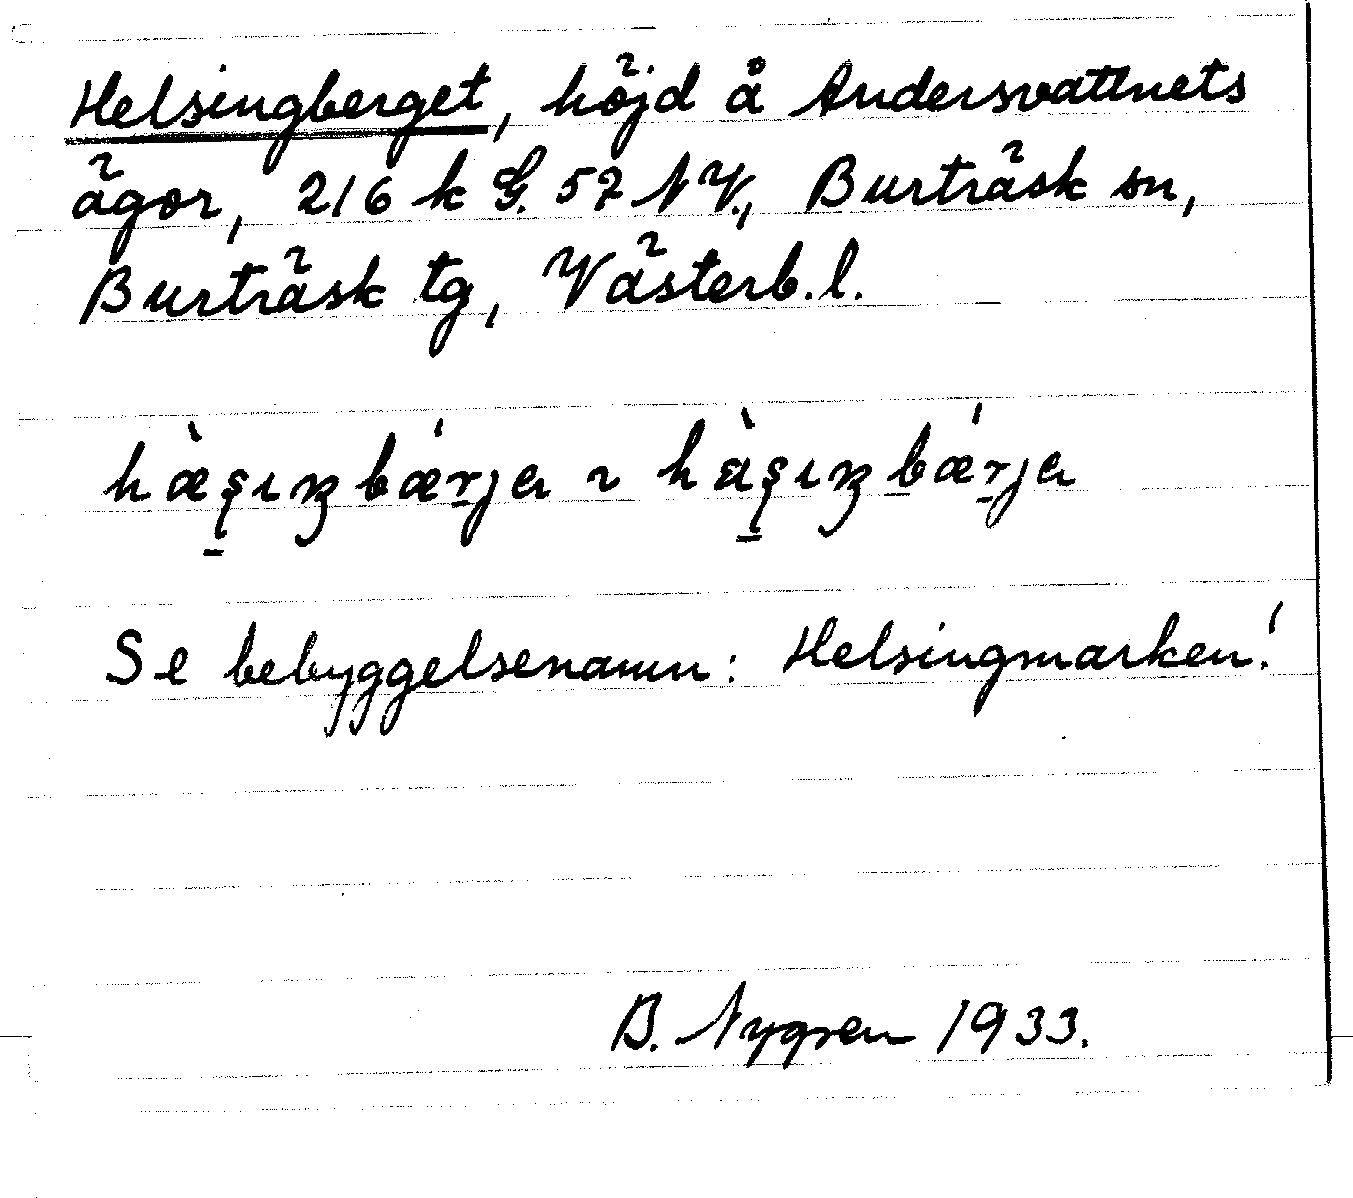 Helsingberget, höjd å Andersvattnets
ägor, 216 k G. 57 NV., Burträsk sn,
Burträsk tg, Västerb. l.
Se bebyggelsenamn: Helsingmarken!
B. Nygren 1933.